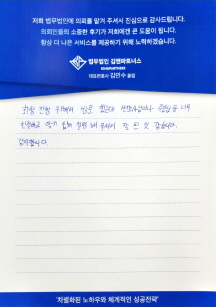 저희 법무법인에 의뢰를 맡겨 주셔서 진심으로 감사드립니다.
의뢰인들의 소중한 후기가 저희에겐 큰 도움이 됩니다.
항상 더 나은 서비스를 제공하기 위해 노력하겠습니다.
법무법인 김앤파트너스
KIM&PARTNERS
대표변호사 김민수 올림
너무
친절하고 알기 쉽게 설명 해 주셔서 잘 된 것 같습니다.
감사합니다.
'차별화된 노하우와 체계적인 성공전략'